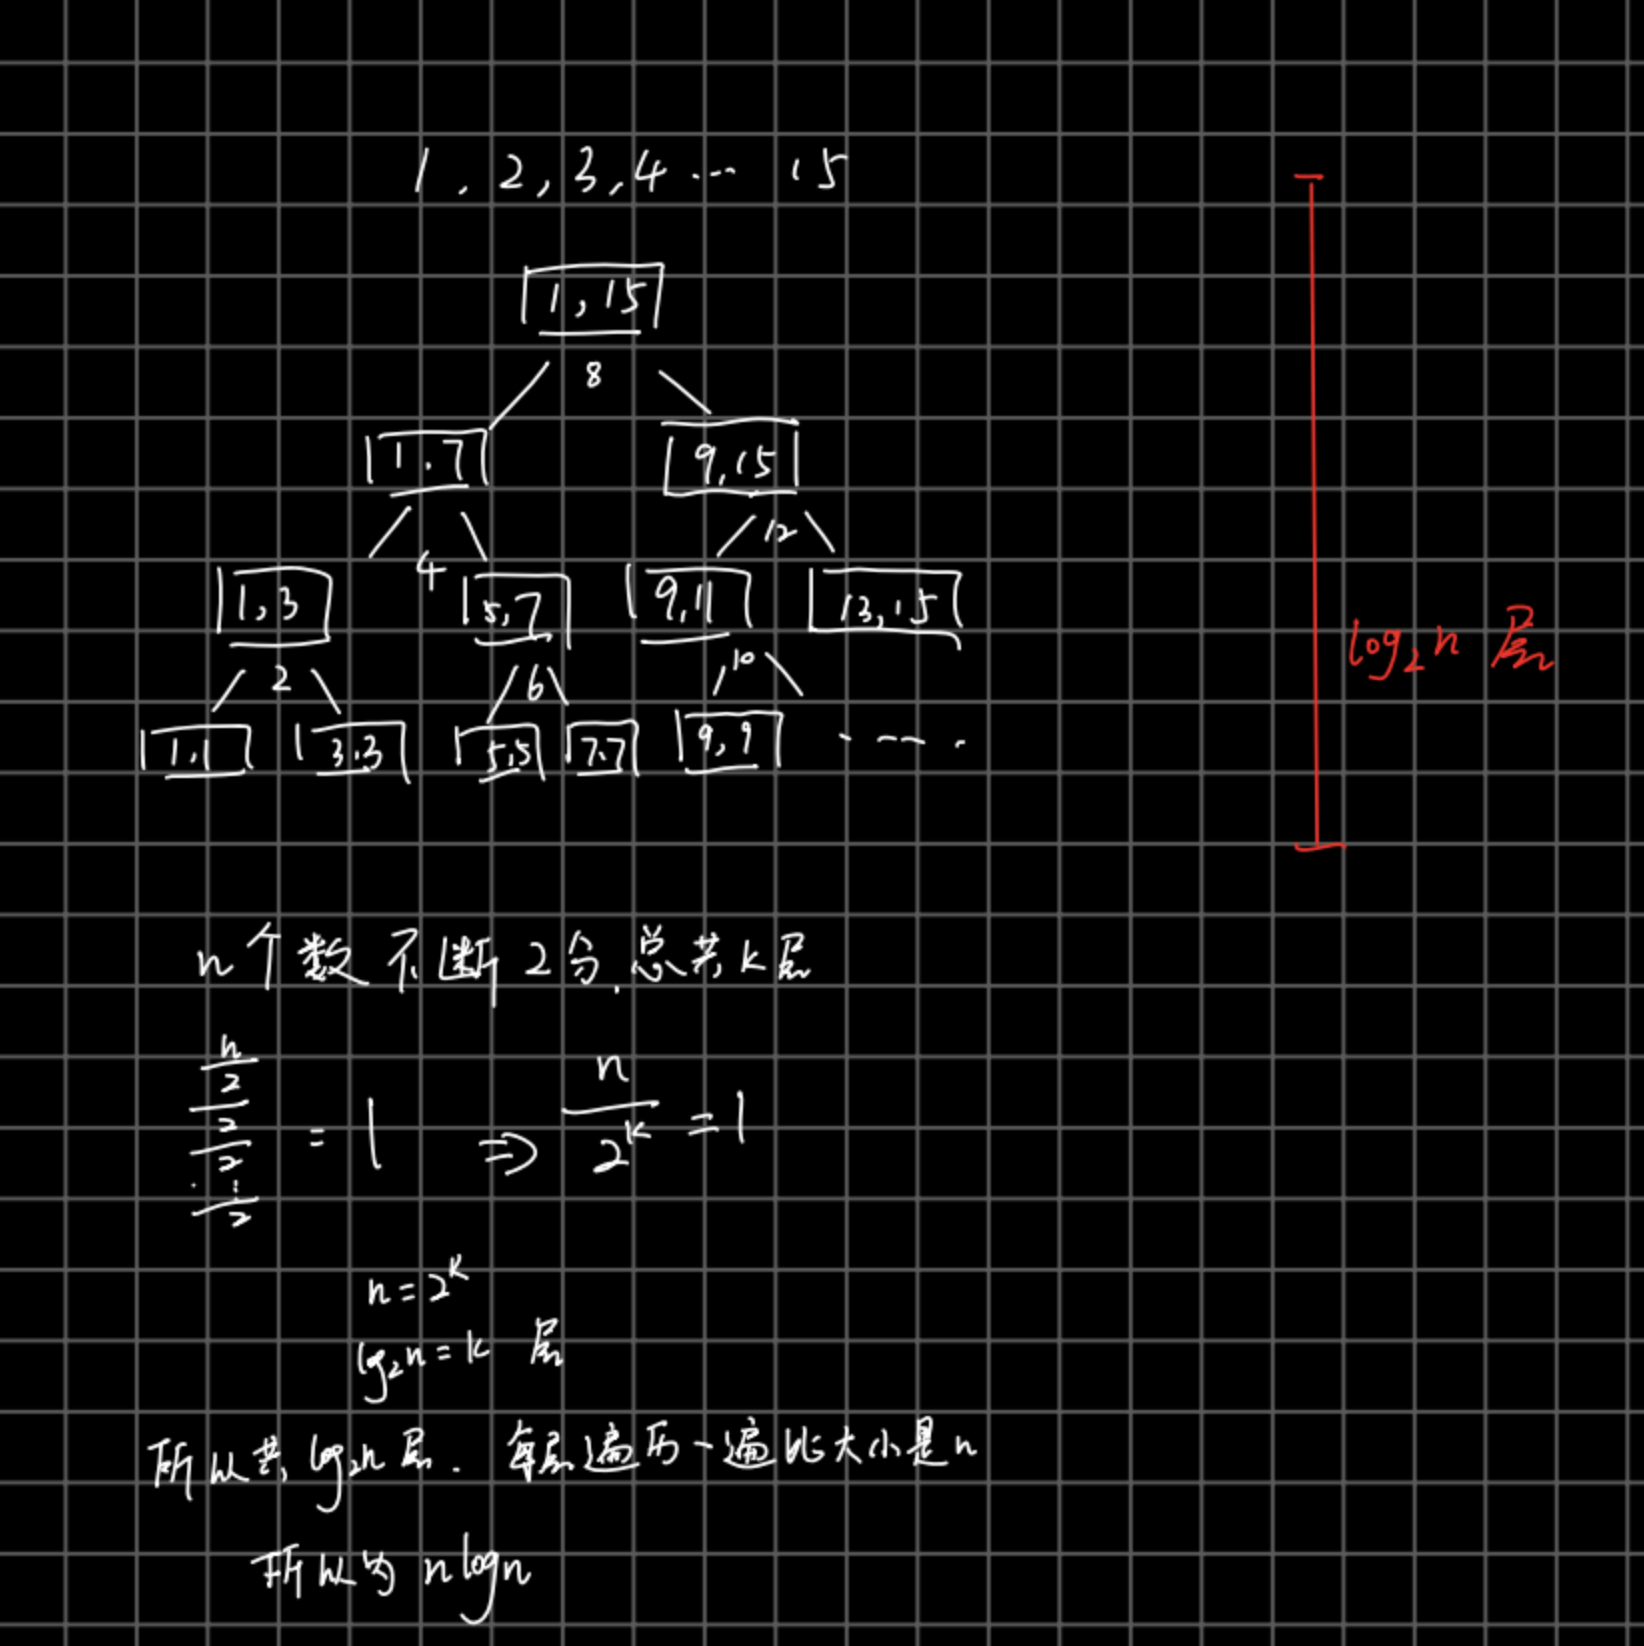 1, 2, 3, 4 ... 15
1, 15
8
1, 7 9, 15
4 12
1, 3 5, 7 9, 11 13, 15
2 6 10
1, 1 3, 3 5, 5 7, 7 9, 9 ....
log₂n 层
n个数不断2分,总共k层
n/2/2/2/⋮/2 = 1 ⇒ n/2^k = 1
n = 2^k
lg₂n = k 层
所以共log₂n层. 每层遍历一遍比大小是n
所以为 nlogn